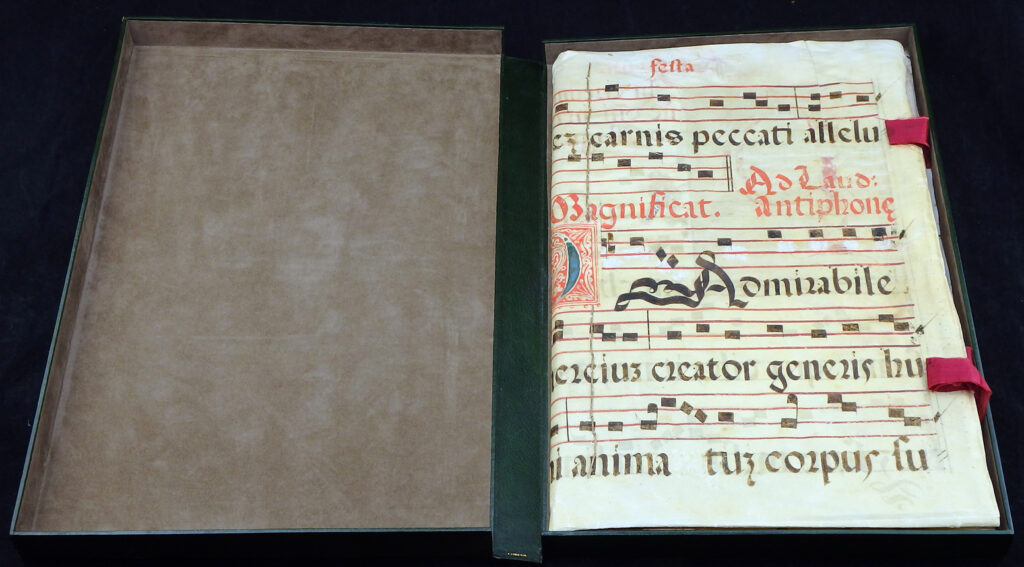 festa
eʒ carnis peccati allelu
Ad Laud:
Magnificat. Antiphonę
O Admirabile
erciuʒ creator generis hu
ni anima tuʒ corpus su